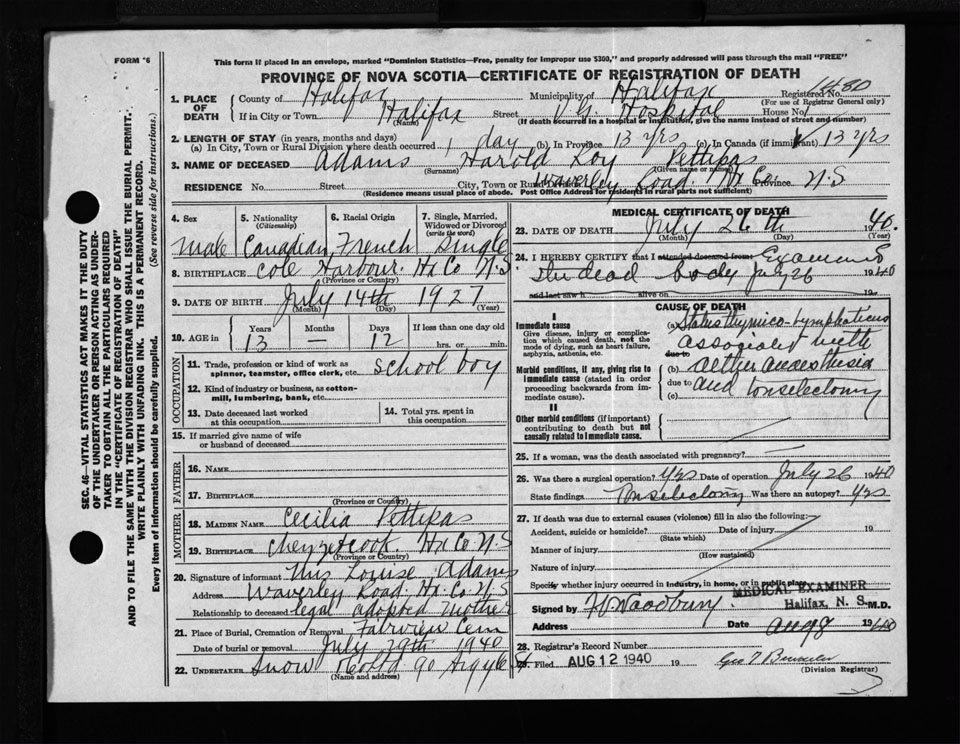 FORM 6
This form if placed in an envelope, marked "Dominion Statistics—Free, penalty for improper use $300," and properly addressed will pass through the mail "FREE"
PROVINCE OF NOVA SCOTIA—CERTIFICATE OF REGISTRATION OF DEATH
1. PLACE OF DEATH
County of Halifax Municipality of Halifax Registered No.
(Name) (For use of Registrar General only)
If in City or Town Halifax Street V.G. Hospital House No.
(If death occurred in a hospital or institution, give the name instead of street and number)
2. LENGTH OF STAY (in years, months and days)
(a) In City, Town or Rural Division where death occurred 1 day (b) In Province 13 yrs (c) In Canada (if immigrant) 13 yrs
3. NAME OF DECEASED Adams Harold Loy Pettipas
(Surname) (Given name or names)
RESIDENCE No. Street City, Town or Rural Division Waverley Road. Hx Co. Province N.S
(Residence means usual place of abode. Post Office Address for residents in rural parts not sufficient)
4. Sex male
5. Nationality (Citizenship) Canadian
6. Racial Origin French
7. Single, Married, Widowed or Divorced (write the word) Single
8. BIRTHPLACE Cole Harbour. Hx Co N.S.
(Province or Country)
9. DATE OF BIRTH July 14th 1927
(Month) (Day) (Year)
10. AGE in Years 13 Months — Days 12 If less than one day old hrs. or min.
OCCUPATION
11. Trade, profession or kind of work as spinner, teamster, office clerk, etc. school boy
12. Kind of industry or business, as cotton-mill, lumbering, bank, etc.
13. Date deceased last worked at this occupation
14. Total yrs. spent in this occupation
15. If married give name of wife or husband of deceased
FATHER
16. NAME
17. BIRTHPLACE
(Province or Country)
MOTHER
18. MAIDEN NAME Cecilia Pettipas
19. BIRTHPLACE Chezzetcook. Hx Co. N.S
(Province or Country)
20. Signature of informant Mrs Louise Adams
Address Waverley Road. Hx. Co. N.S
Relationship to deceased legal adopted mother
21. Place of Burial, Cremation or Removal Fairview Cem
Date of burial or removal July 29th 1940
22. UNDERTAKER Snow & Co Ltd 90 Argyle St
(Name and address)
MEDICAL CERTIFICATE OF DEATH
23. DATE OF DEATH July 26th 1940.
(Month) (Day) (Year)
24. I HEREBY CERTIFY that I attended deceased from Examined
the dead body July 26 1940
and last saw h alive on 19
CAUSE OF DEATH
I
Immediate cause
Give disease, injury or complication which caused death, not the mode of dying, such as heart failure, asphyxia, asthenia, etc.
Morbid conditions, if any, giving rise to immediate cause (stated in order proceeding backwards from immediate cause).
II
Other morbid conditions (if important) contributing to death but not causally related to immediate cause.
(a) Status thymico-lymphaticus
associated with
due to
(b) aether anaesthesia
due to
(c) and tonsilectomy
25. If a woman, was the death associated with pregnancy? —
26. Was there a surgical operation? Yes Date of operation July 26 1940
State findings Tonsilectomy Was there an autopsy? Yes
27. If death was due to external causes (violence) fill in also the following:
Accident, suicide or homicide? Date of injury 19
(State which)
Manner of injury
(How sustained)
Nature of injury
Specify whether injury occurred in industry, in home, or in public place
MEDICAL EXAMINER
Halifax, N. S.
Signed by H Woodbury M.D.
Address Date Aug 8 1940
28. Registrar's Record Number
29. Filed AUG 12 1940 19
(Division Registrar)
SEC. 46—VITAL STATISTICS ACT MAKES IT THE DUTY
OF THE UNDERTAKER OR PERSON ACTING AS UNDER-
TAKER TO OBTAIN ALL THE PARTICULARS REQUIRED
IN THE "CERTIFICATE OF REGISTRATION OF DEATH"
AND TO FILE THE SAME WITH THE DIVISION REGISTRAR WHO SHALL ISSUE THE BURIAL PERMIT.
WRITE PLAINLY WITH UNFADING INK. THIS IS A PERMANENT RECORD.
Every item of Information should be carefully supplied. (See reverse side for instructions.)